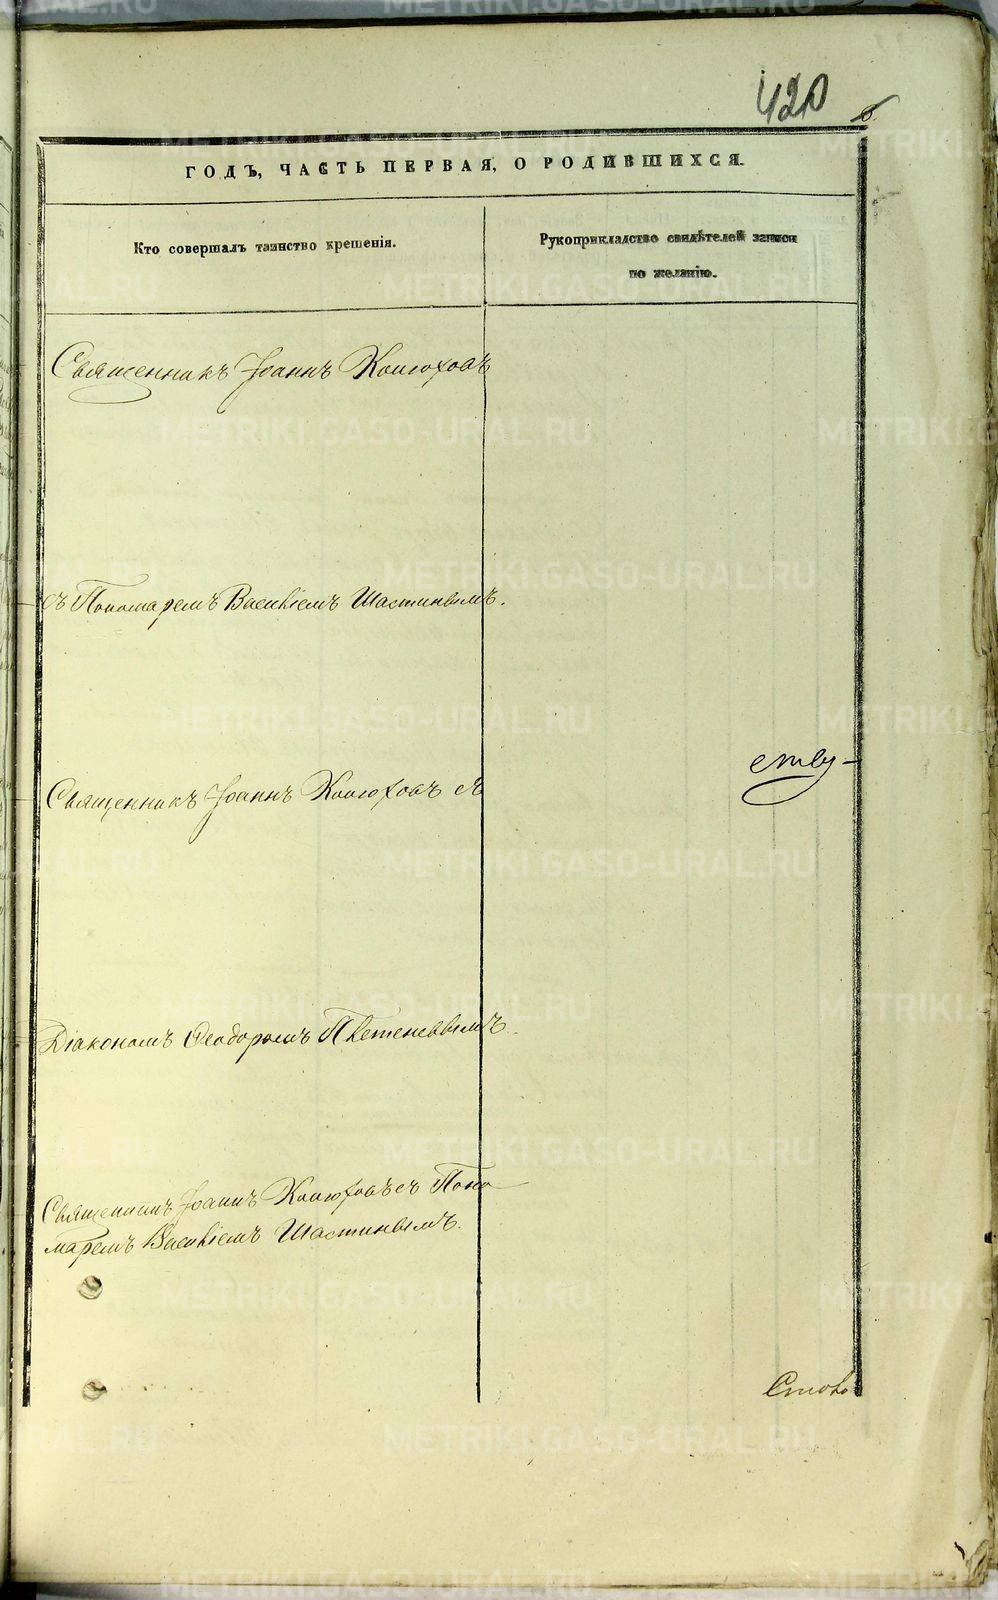 420
ГОДЪ, ЧАСТЬ ПЕРВАЯ, О РОДИВШИХСЯ.
Кто совершалъ таинство крещенія.
Рукоприкладство свидѣтелей записи
по желанію.
Священникъ Іоаннъ Конюховъ
съ Пономаремъ Василіемъ Шастинымъ.
ству-
Священникъ Іоаннъ Конюховъ съ
Діакономъ Ѳеодоромъ Плетеневымъ.
Священникъ Іоаннъ Конюховъ съ Поно
маремъ Василіемъ Шастинымъ.
METRIKI.GASO-URAL.RU